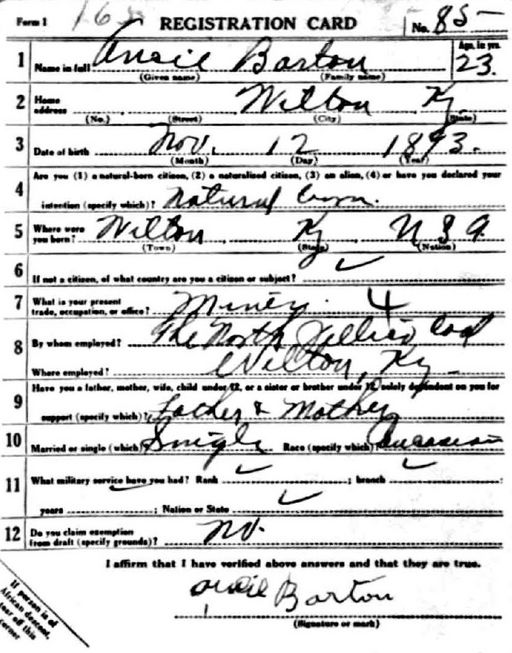 Form 1 REGISTRATION CARD No. 85
Age, in yrs.
1 Name in full Ancil Barton 23.
(Given name) (Family name)
2 Home address Wilton Ky.
(No.) (Street) (City) (State)
3 Date of birth Nov. 12 1893.
(Month) (Day) (Year)
Are you (1) a natural-born citizen, (2) a naturalized citizen, (3) an alien, (4) or have you declared your
4 intention (specify which)? Natural born.
5 Where were you born? Wilton Ky U S A.
(Town) (State) (Nation)
6 If not a citizen, of what country are you a citizen or subject? ✓
7 What is your present trade, occupation, or office? Miner. 4
8 By whom employed? The North Jellico Coal
Where employed? Wilton, Ky
Have you a father, mother, wife, child under 12, or a sister or brother under 12, solely dependent on you for
9 support (specify which)? Father & Mother
10 Married or single (which)? Single Race (specify which)? Caucasian
11 What military service have you had? Rank ✓ ; branch ✓
years ; Nation or State ✓
12 Do you claim exemption from draft (specify grounds)? No.
I affirm that I have verified above answers and that they are true.
Ancil Barton
(Signature or mark)
If person is of
African descent,
tear off this
corner